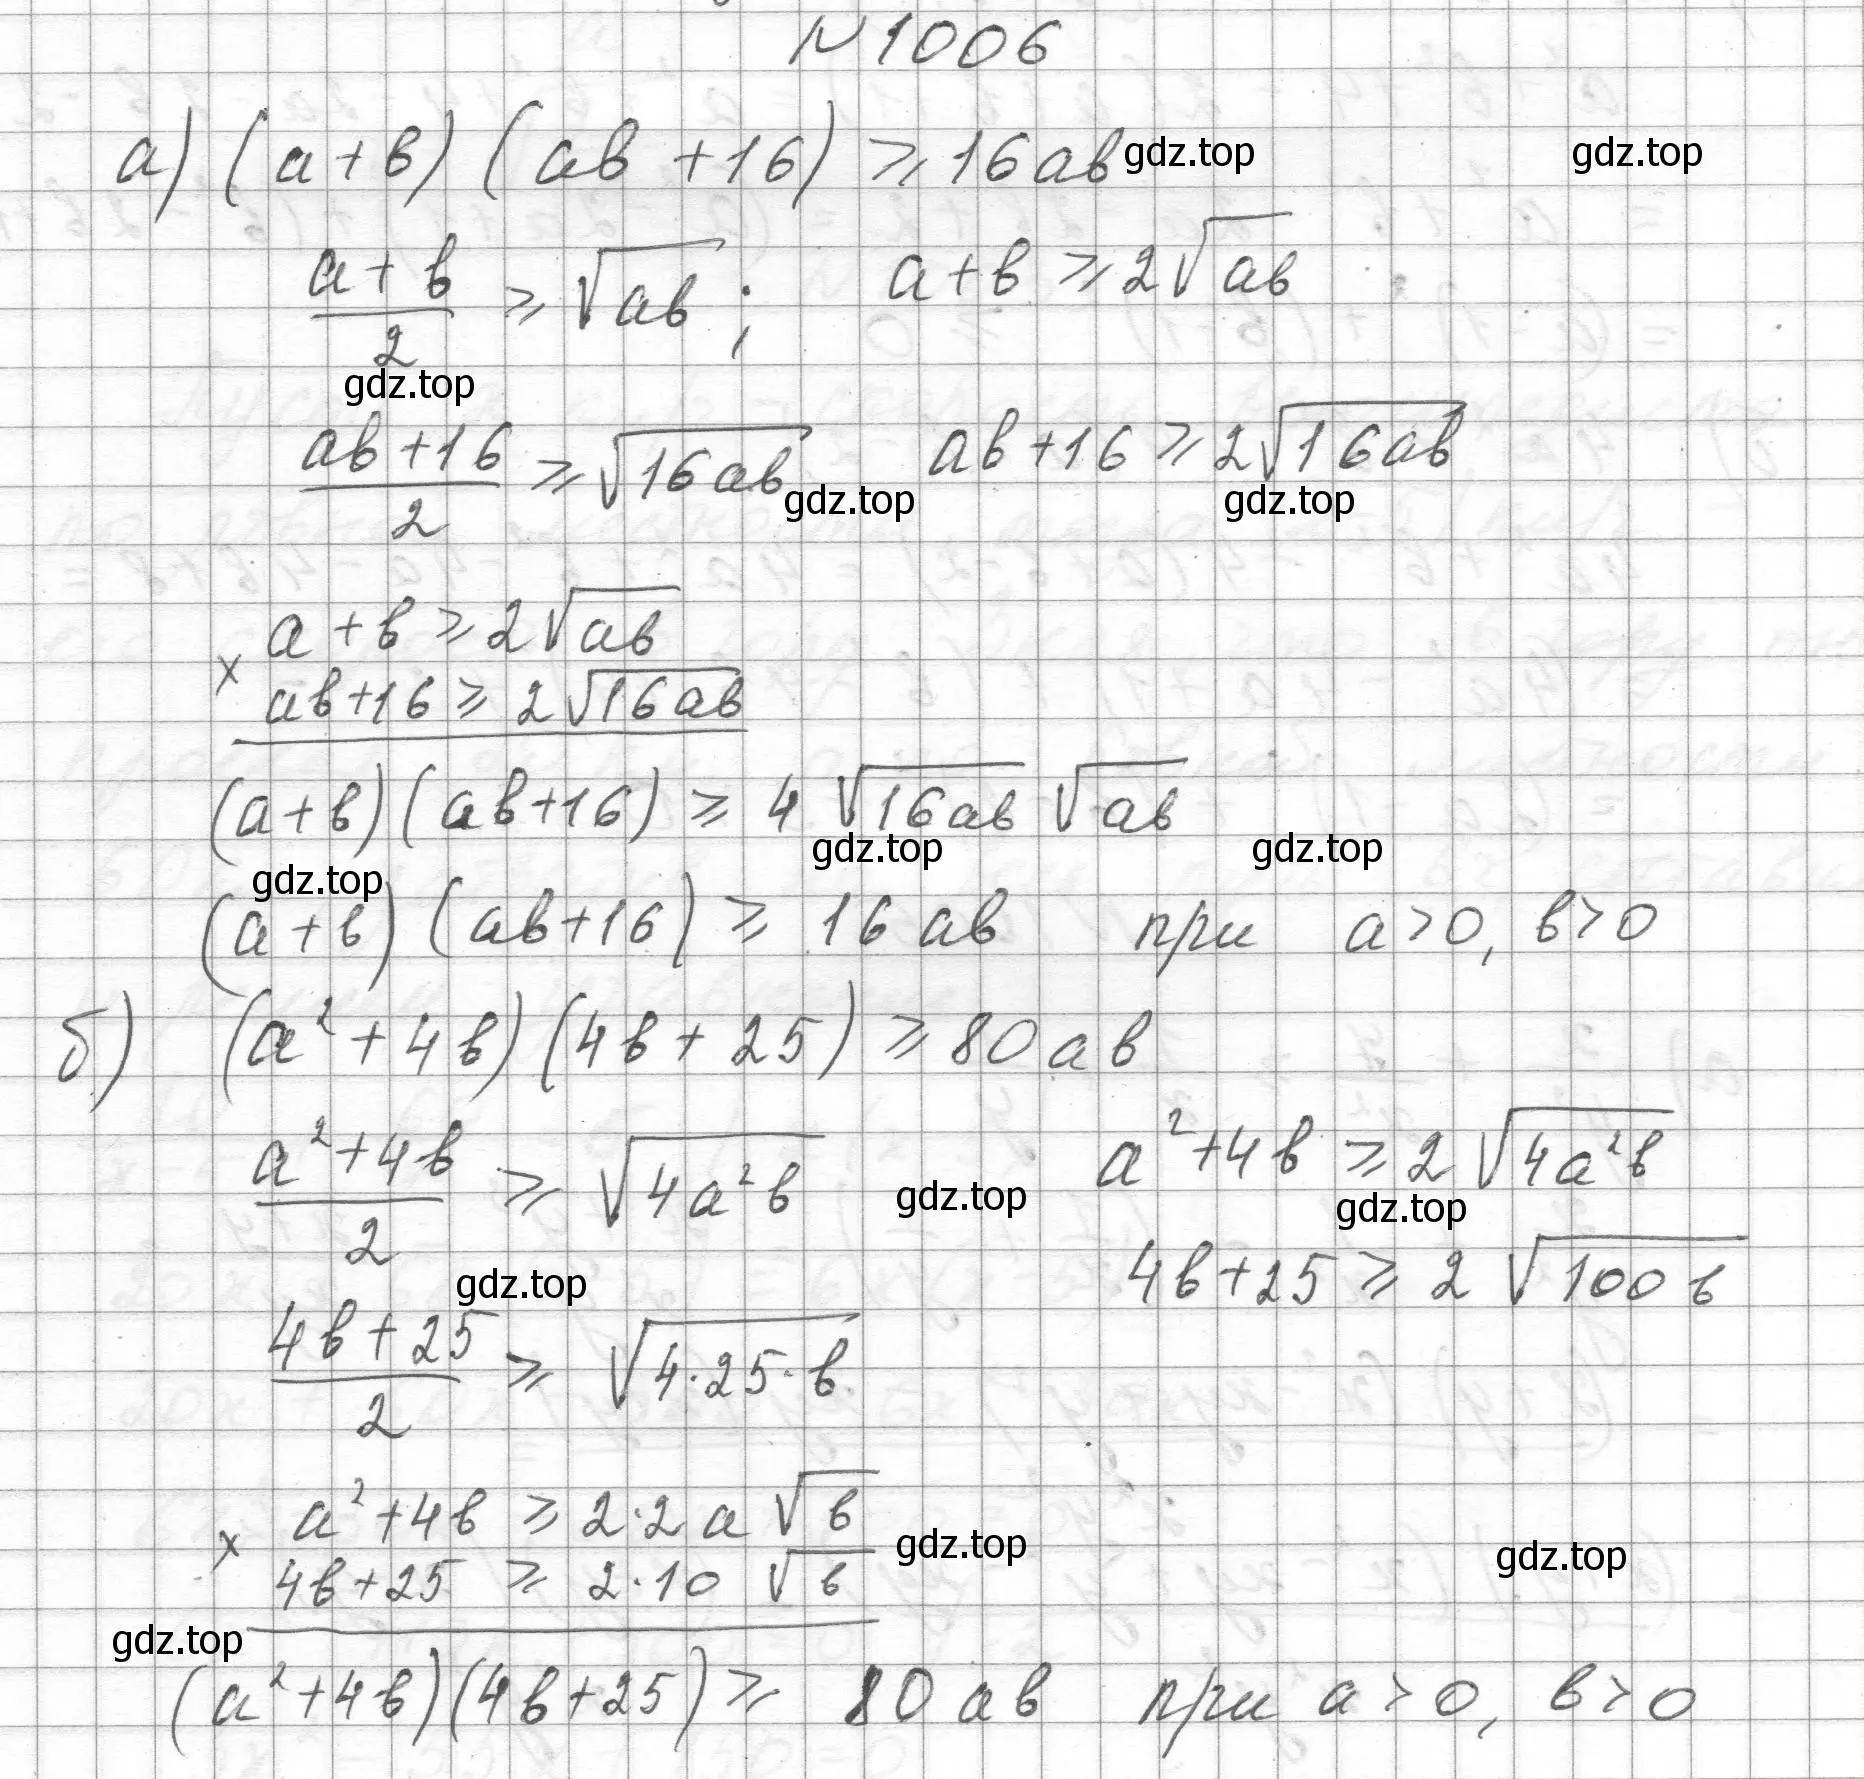 N 1006
а) (a+b) (ab +16) ⩾ 16ab gdz.top gdz.top
(a+b)/2 ⩾ √(ab) ; a+b ⩾ 2√(ab)
gdz.top
(ab+16)/2 ⩾ √(16ab) ab+16 ⩾ 2√(16ab)
gdz.top gdz.top
× a+b ⩾ 2√(ab)
ab+16 ⩾ 2√(16ab)
(a+b)(ab+16) ⩾ 4 √(16ab) √(ab)
gdz.top gdz.top gdz.top
(a+b)(ab+16) ⩾ 16 ab при a>0, b>0
б) (a²+4b)(4b+25) ⩾ 80ab
(a²+4b)/2 ⩾ √(4a²b) gdz.top a²+4b ⩾ 2√(4a²b)
gdz.top
gdz.top 4b+25 ⩾ 2√(100b)
(4b+25)/2 ⩾ √(4·25·b)
× a²+4b ⩾ 2·2a√b gdz.top gdz.top
4b+25 ⩾ 2·10 √b
gdz.top
(a²+4b)(4b+25) ⩾ 80ab при a>0, b>0